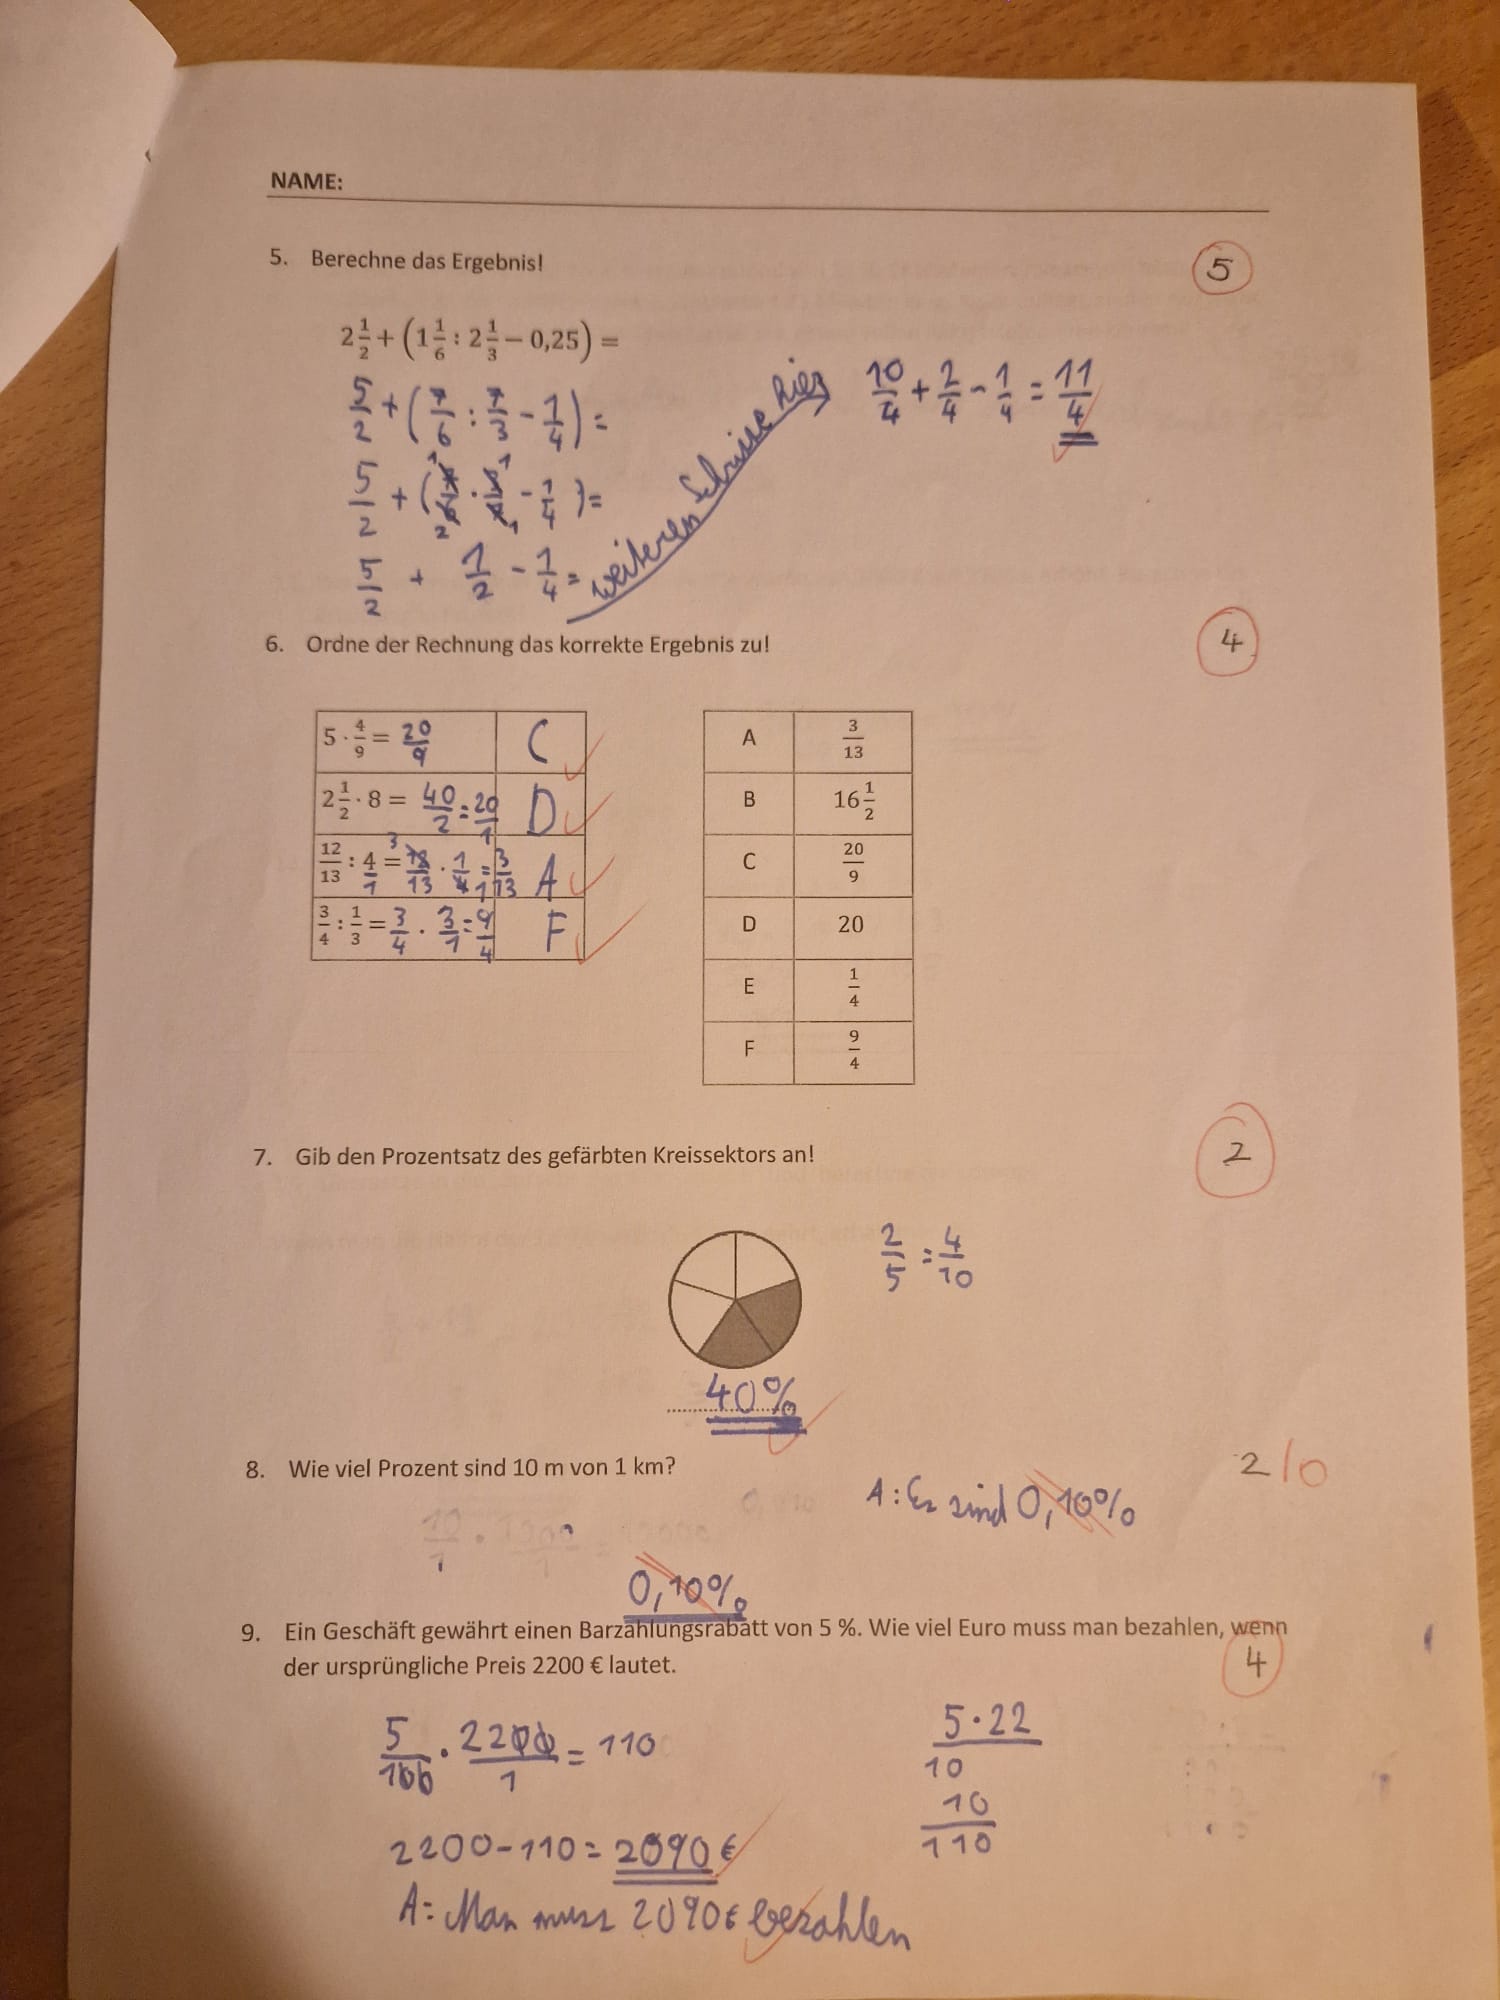 NAME:
5. Berechne das Ergebnis!
5
2 1/2 + (1 1/6 : 2 1/3 − 0,25) =
5/2 + (7/6 : 7/3 - 1/4) =
5/2 + (7/6 · 3/7 - 1/4) =
1 1
2 1
5/2 + 1/2 - 1/4 =
weiteren Schritte hier
10/4 + 2/4 - 1/4 = 11/4
6. Ordne der Rechnung das korrekte Ergebnis zu!
4
5 · 4/9 = 20/9 C
2 1/2 · 8 = 40/2 = 20/1 D
12/13 : 4/1 = 12/13 · 1/4 = 3/13 A
3 1
3/4 : 1/3 = 3/4 · 3/1 = 9/4 F
A 3/13
B 16 1/2
C 20/9
D 20
E 1/4
F 9/4
7. Gib den Prozentsatz des gefärbten Kreissektors an!
2
2/5 = 4/10
40%
8. Wie viel Prozent sind 10 m von 1 km?
2/0
A: Es sind 0,10%
0,10%
9. Ein Geschäft gewährt einen Barzahlungsrabatt von 5 %. Wie viel Euro muss man bezahlen, wenn
der ursprüngliche Preis 2200 € lautet.
4
5/100 · 2200/1 = 110
5·22
10
10
110
2200-110 = 2090 €
A: Man muss 2090€ bezahlen